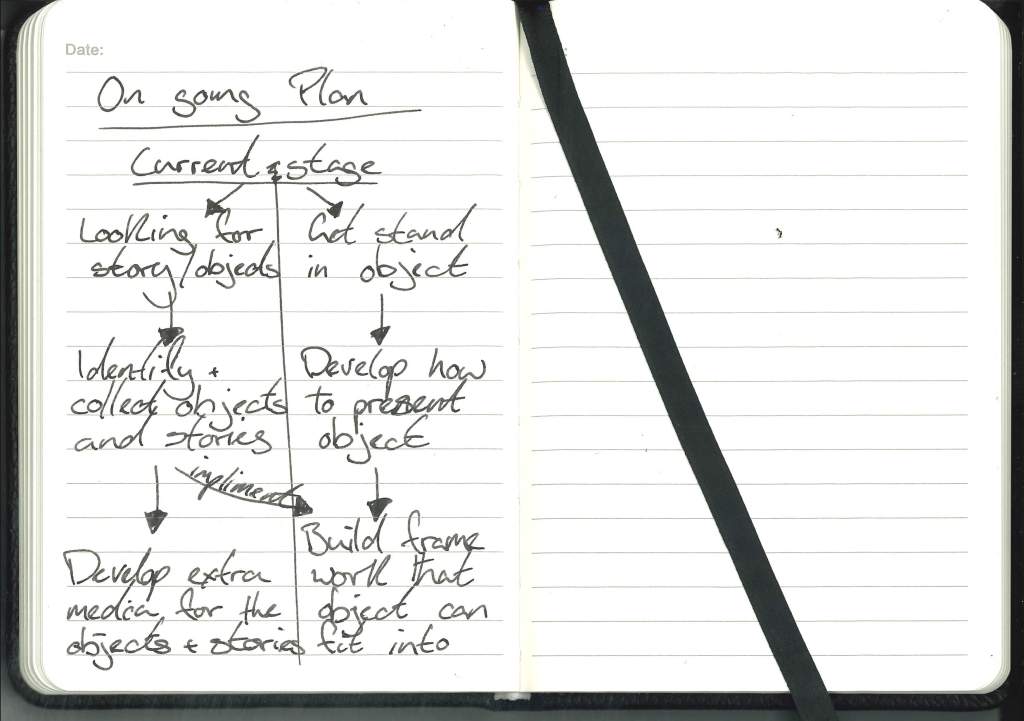 Date:
On going Plan
Current & stage
Looking for
story/objects
Identify +
collect objects
and stories
impliment
Develop extra
media for the
objects + stories
Get stand
in object
Develop how
to present
object
Build frame
work that
object can
fit into